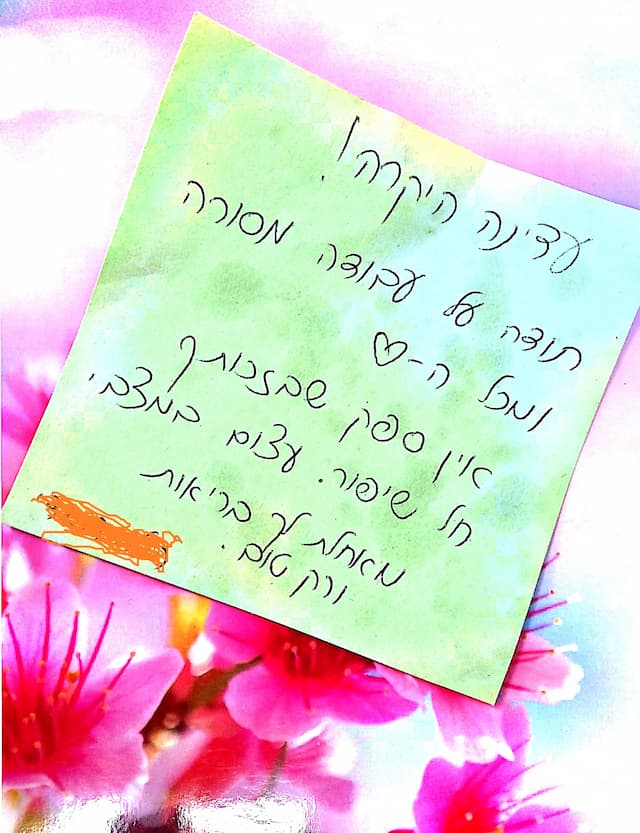 עדינה היקרה!
תודה על עבודה מסורה
ומכל ה-♡
אין ספק שבזכותך
חל שיפור עצום במצבי.
מאחלת לך בריאות
ורק טוב.